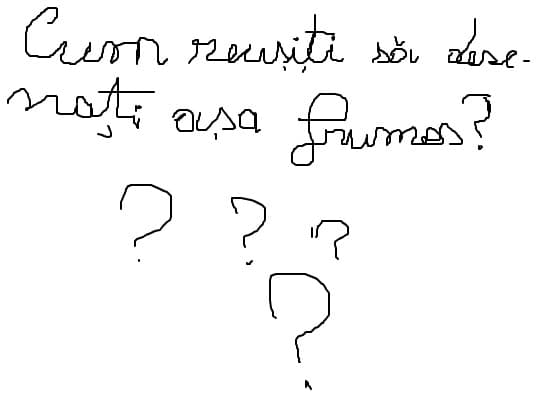 Cum reușiți să dese-
nați așa frumos?
? ? ?
?